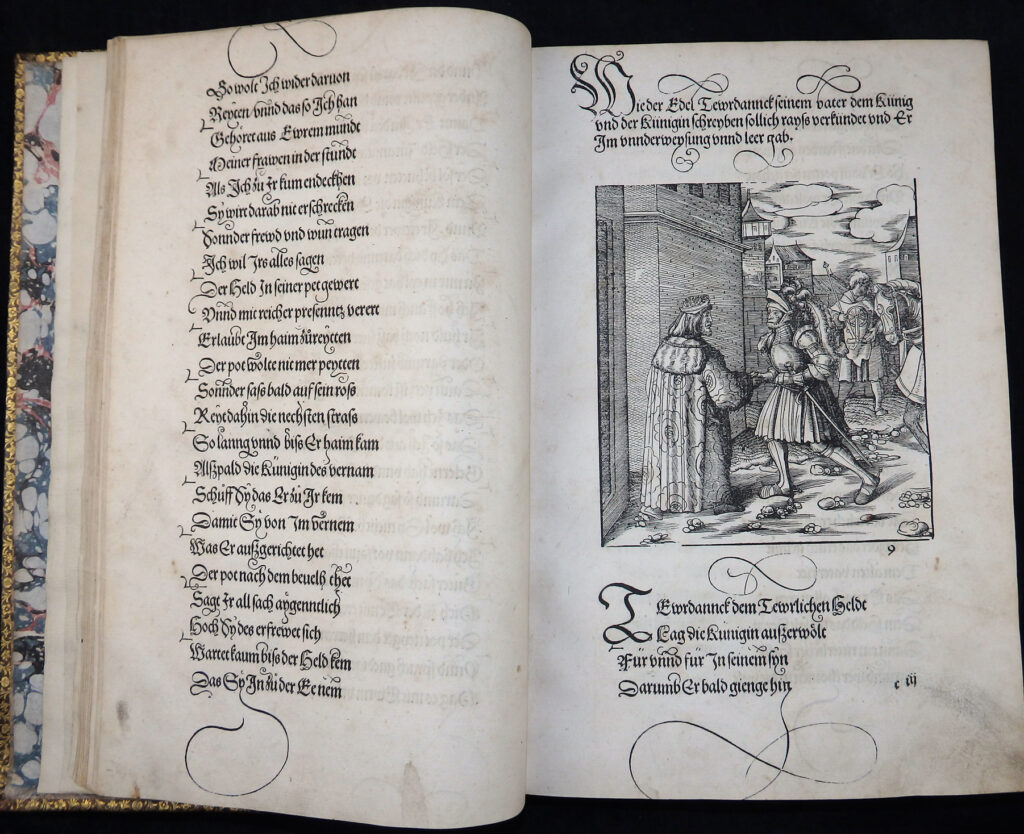 So wolt Ich wider daruon
Reyten vnnd das so Ich han
Gehöret aus Ewrem mundt
Meiner frawen in der stundt
Als Ich zu Ir kum endeckhen
Sy wirt darab nit erschrecken
Sonnder frewd vnd wun eragen
Ich wil Irs alles sagen
Der Held In seiner pet gewert
Vnnd mit reicher presenntz verert
Erlaubt Im haim zůreytten
Der pot wolte nit mer peytten
Sonnder sass bald auf sein ross
Reyt dahin die nechsten strass
So lanng vnnd biss Er haim kam
Alsspald die Künigin des vernam
Schůff dy das Er zů Ir kem
Damit Sy von Im vernem
Was Er außgerichtet het
Der pot nach dem beuelh thet
Sagt Ir all sach aygenntlich
Hoch dy des erfrewet sich
Wartet kaum biss der Held kem
Das Sy In zů der Ee nem
Wie der Edel Tewrdannck seinem vater dem Künig
vnd der Künigin schreyben sollich rayss verkündet vnd Er
Im vnnderweysung vnnd leer gab.
9
TEwrdannck dem Tewrlichen Heldt
Lag die Künigin außerwölt
Für vnnd für In seinem syn
Darumb Er bald gienge hin
c iij